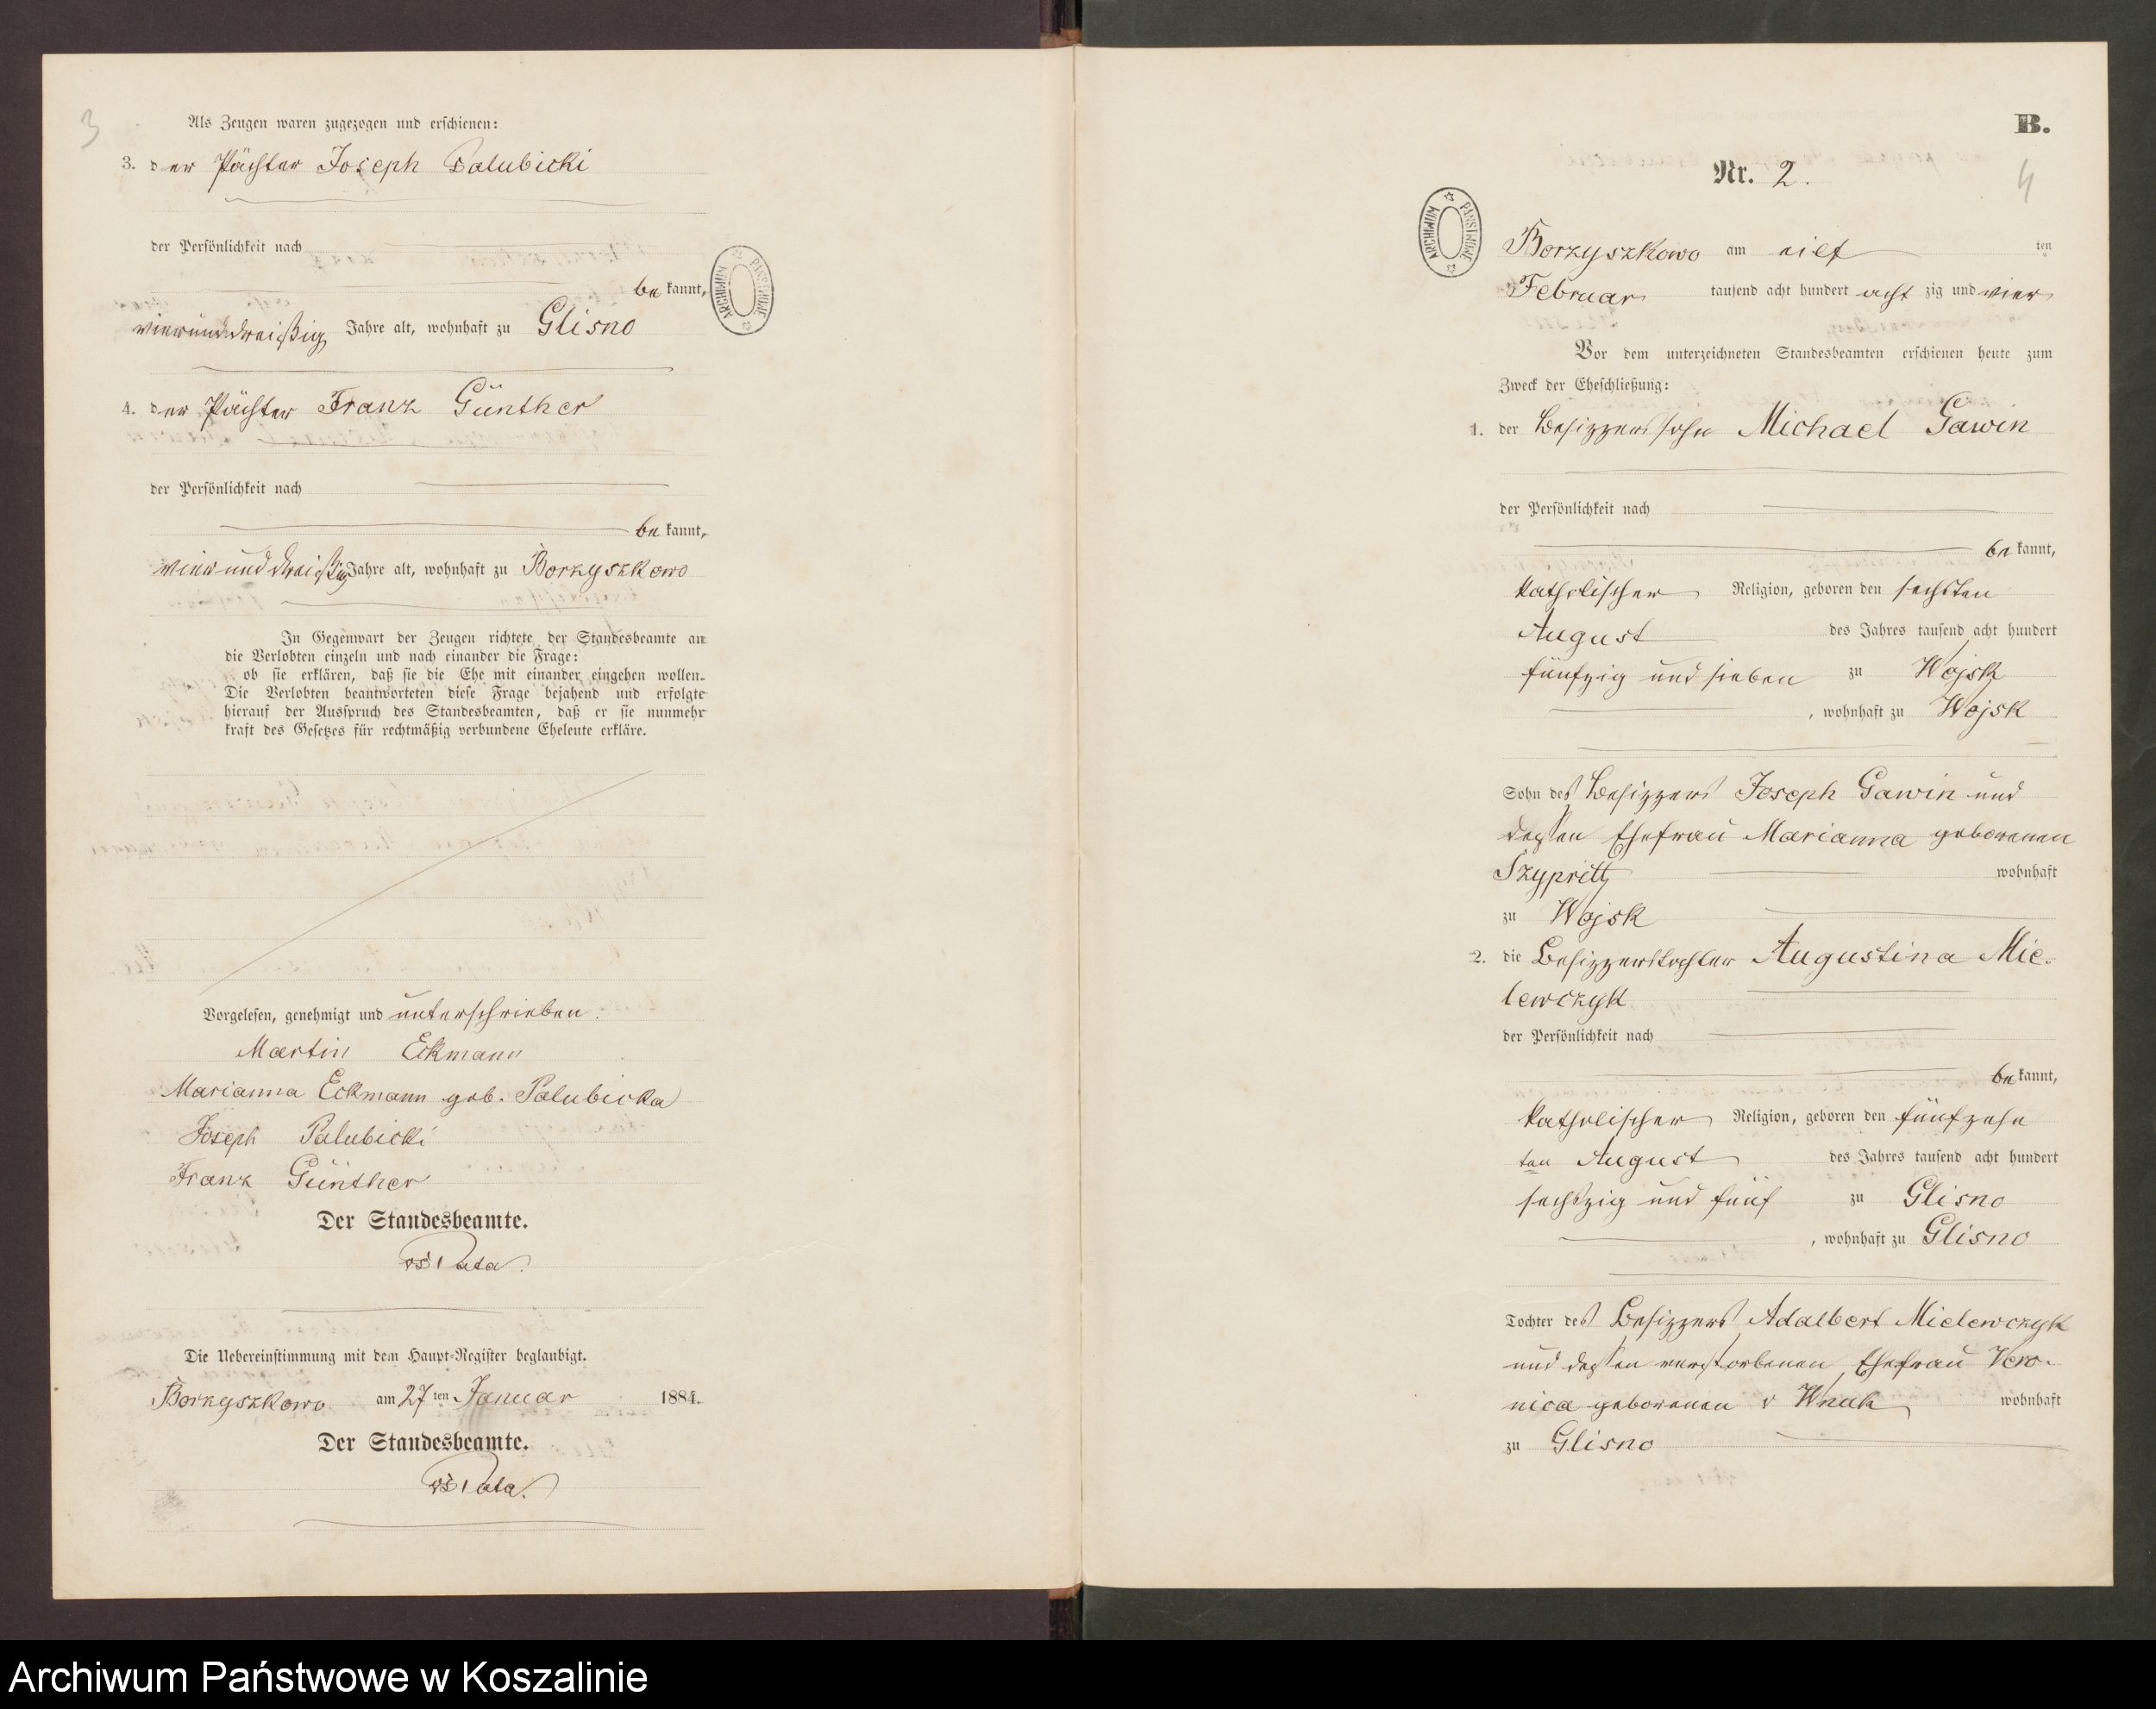 3
Als Zeugen waren zugezogen und erschienen:
3. der Pächter Joseph Palubicki
der Persönlichkeit nach
be kannt,
vierunddreißig Jahre alt, wohnhaft zu Glisno
4. der Pächter Franz Günther
der Persönlichkeit nach
be kannt,
vierunddreißig Jahre alt, wohnhaft zu Borzyszkowo
In Gegenwart der Zeugen richtete der Standesbeamte an
die Verlobten einzeln und nach einander die Frage:
ob sie erklären, daß sie die Ehe mit einander eingehen wollen.
Die Verlobten beantworteten diese Frage bejahend und erfolgte
hierauf der Ausspruch des Standesbeamten, daß er sie nunmehr
kraft des Gesetzes für rechtmäßig verbundene Eheleute erkläre.
Vorgelesen, genehmigt und unterschrieben.
Martin Eckmann
Marianna Eckmann geb. Palubicka
Joseph Palubicki
Franz Günther
Der Standesbeamte.
Die Uebereinstimmung mit dem Haupt-Register beglaubigt.
Borzyszkowo am 27 ten Januar 1884.
Der Standesbeamte.
ARCHIWUM PAŃSTWOWE
B.
Nr. 2.
4
ARCHIWUM PAŃSTWOWE
Borzyszkowo am eilf ten
Februar tausend acht hundert acht zig und vier
Vor dem unterzeichneten Standesbeamten erschienen heute zum
Zweck der Eheschließung:
1. der Besizzerssohn Michael Gawin
der Persönlichkeit nach
be kannt,
katholischer Religion, geboren den sechsten
August des Jahres tausend acht hundert
fünfzig und sieben zu Wojsk
, wohnhaft zu Wojsk
Sohn des Besizzers Joseph Gawin und
dessen Ehefrau Marianna geborenen
Szypritt wohnhaft
zu Wojsk
2. die Besizzerstochter Augustina Mie-
lewczyk
der Persönlichkeit nach
be kannt,
katholischer Religion, geboren den fünfzehn
ten August des Jahres tausend acht hundert
sechszig und fünf zu Glisno
, wohnhaft zu Glisno
Tochter des Besizzers Adalbert Mielewczyk
und dessen verstorbenen Ehefrau Vero-
nica geborenen v Wnuk wohnhaft
zu Glisno
Archiwum Państwowe w Koszalinie